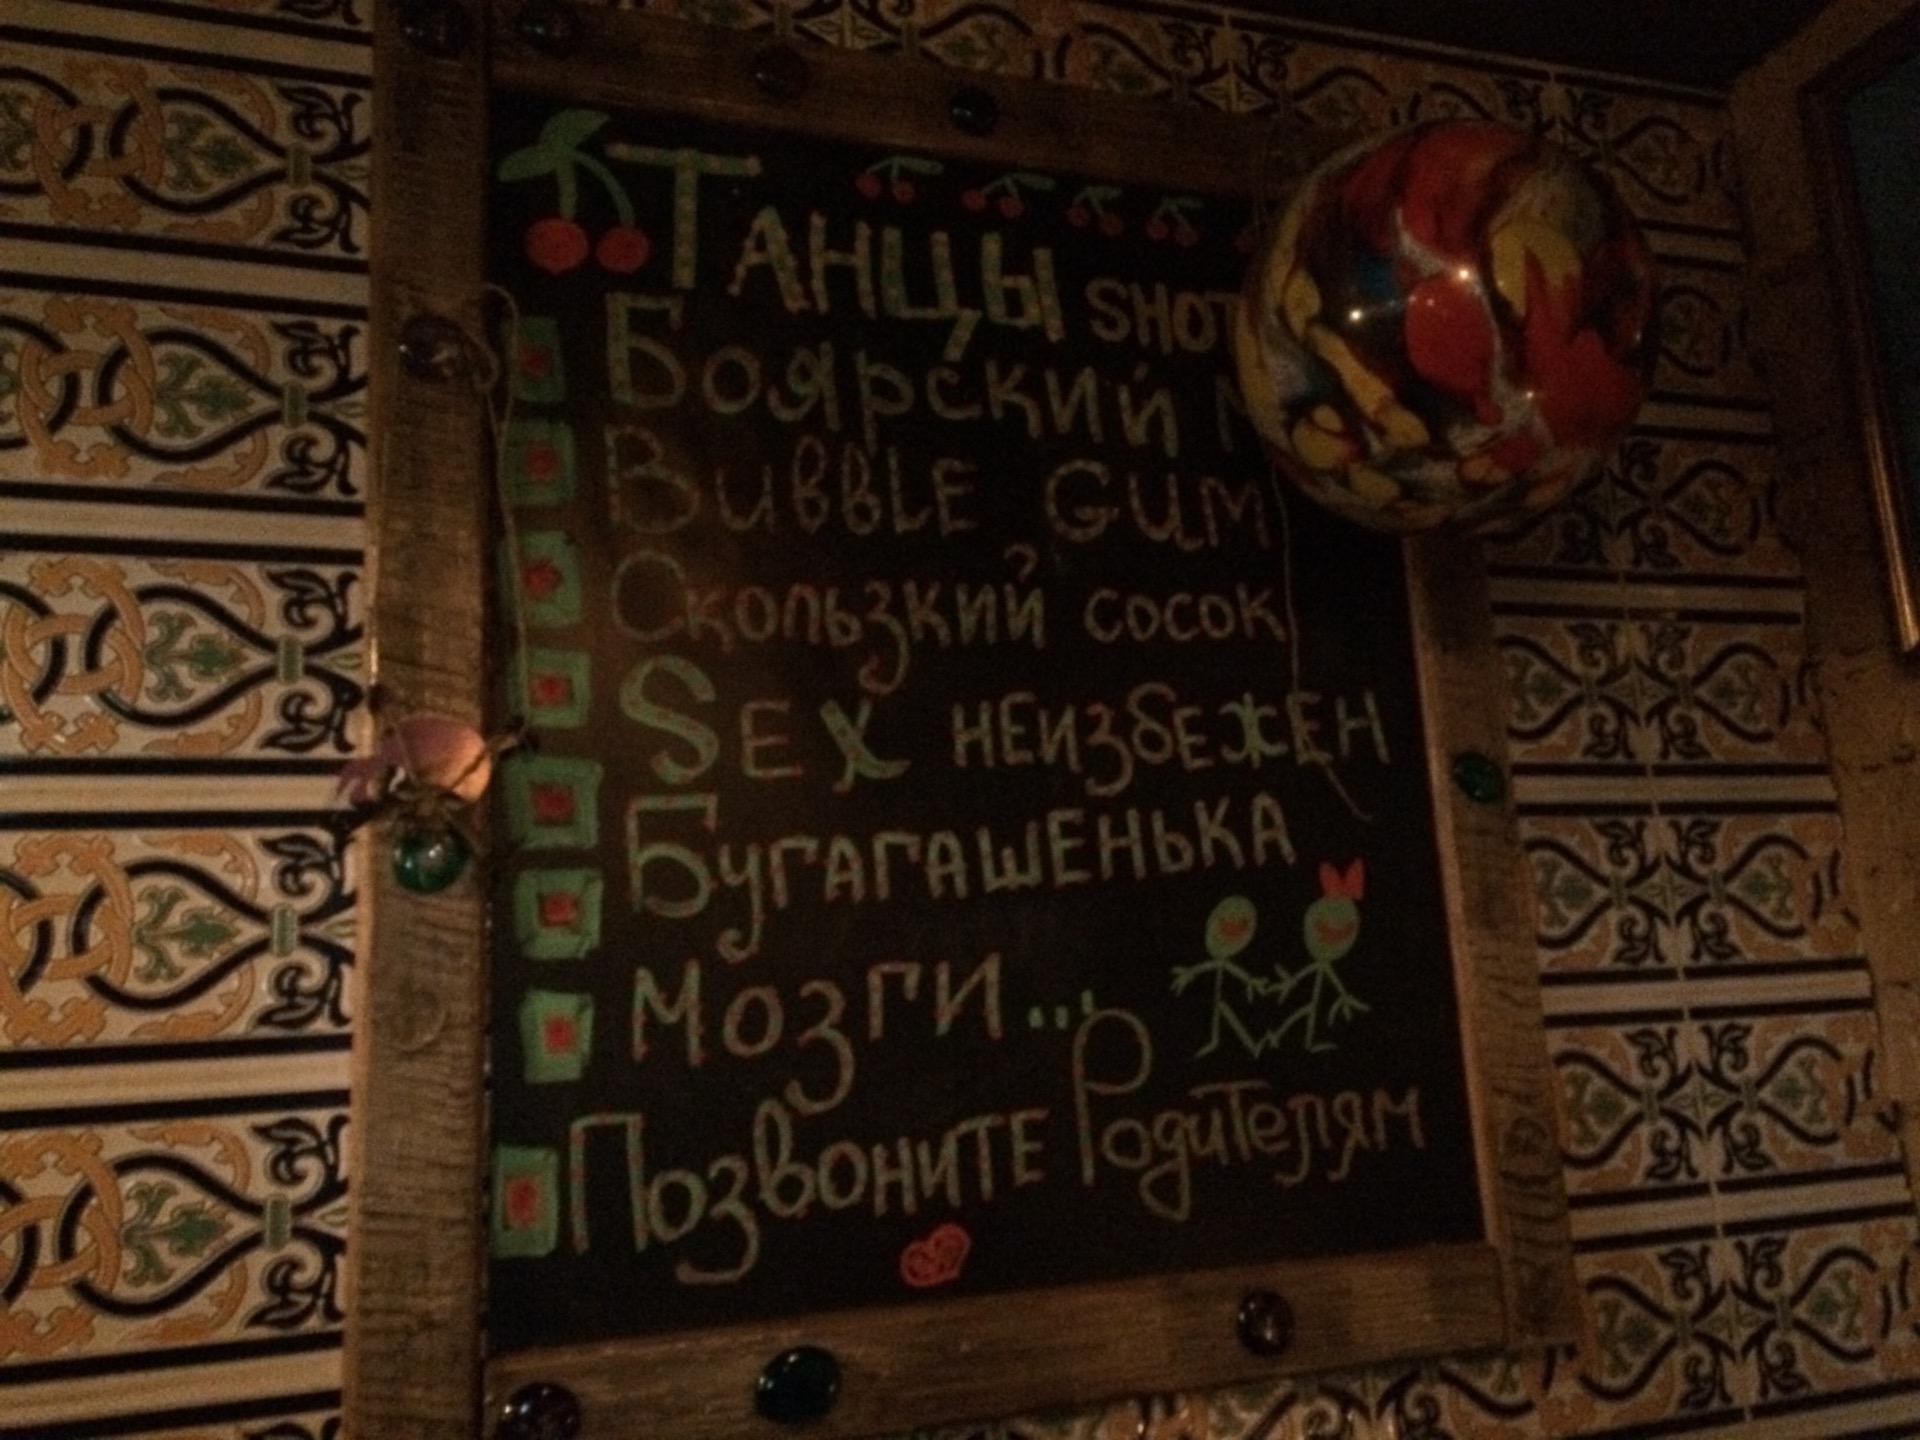 Танцы SHOT
Боярский
Bubble Gum
Скользкий сосок
Sex неизбежен
Бугагашенька
Мозги...
Позвоните Родителям